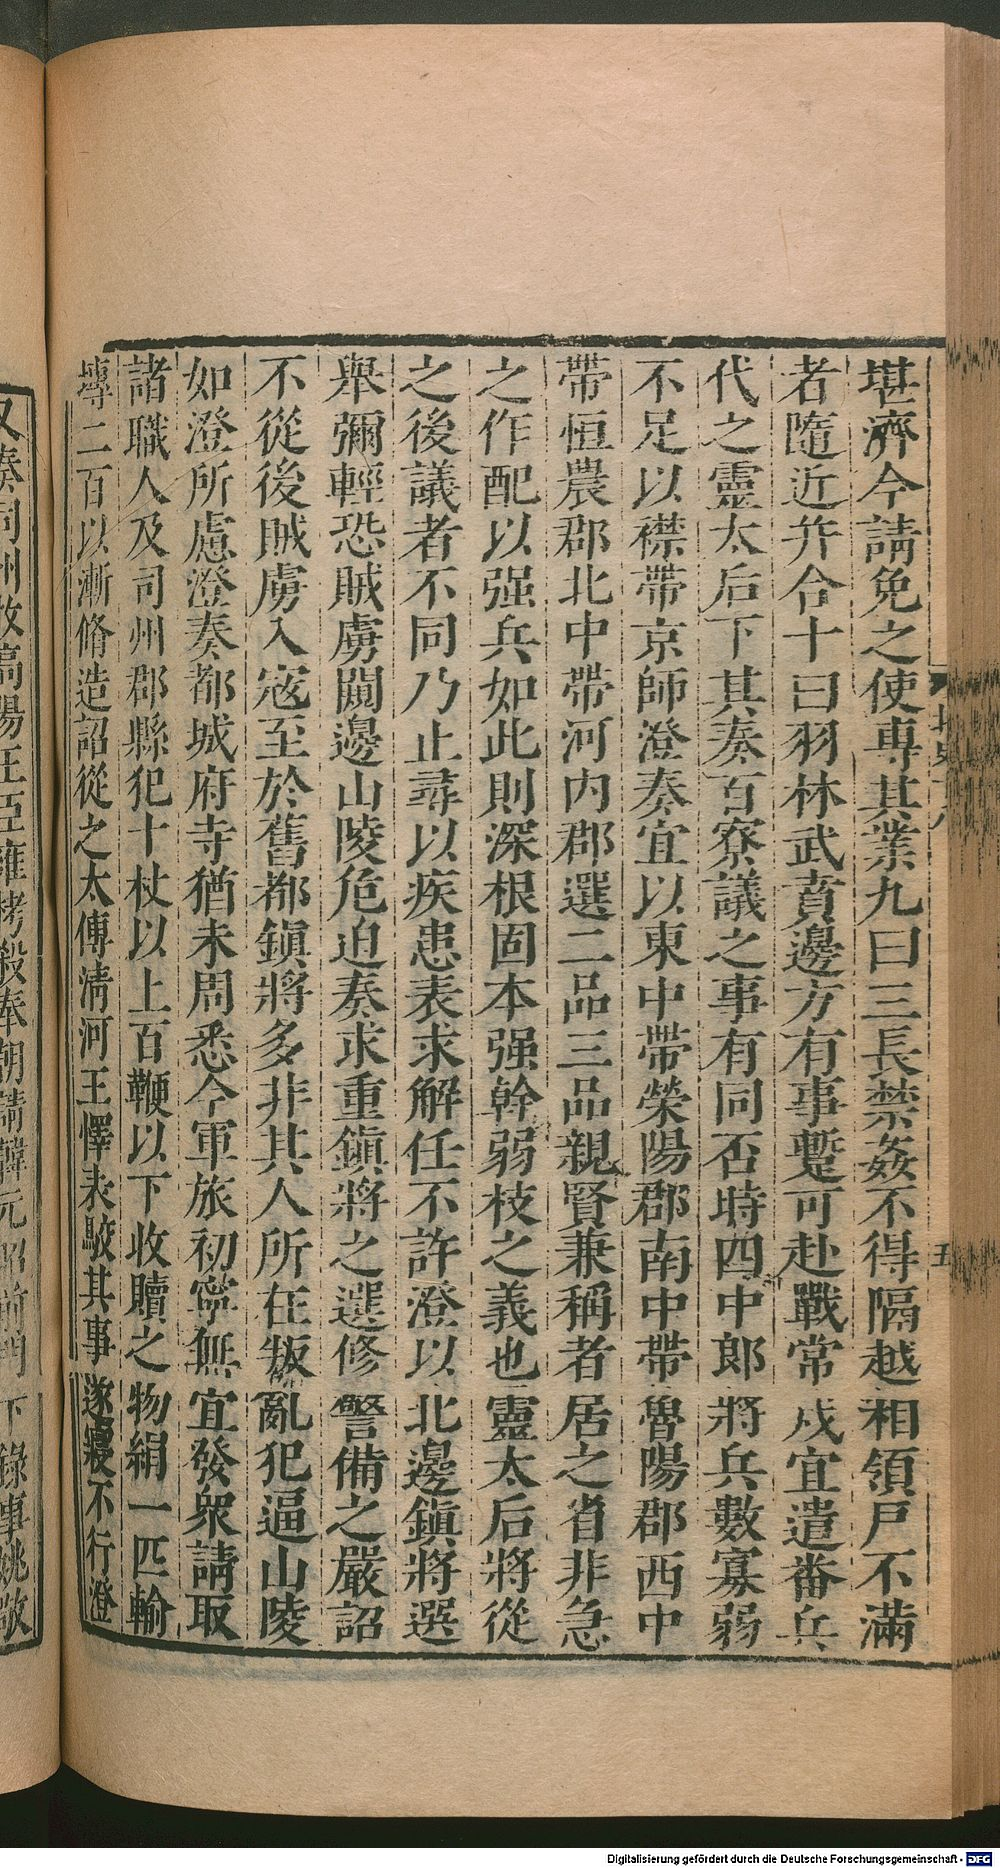 堪濟今請免之使專其業九曰三長禁姦不得隔越相領戸不滿
者隨近并合十曰羽林武賁邊方有事蹔可赴戰常戍宜遣番兵
代之靈太后下其奏百寮議之事有同否時四中郎將兵數寡弱
不足以襟帶京師澄奏宜以東中帶滎陽郡南中帶魯陽郡西中
帶恒農郡北中帶河內郡選二品三品親賢兼稱者居之省非急
之作配以强兵如此則深根固本强幹弱枝之義也靈太后將從
之後議者不同乃止尋以疾患表求解任不許澄以北邊鎭將選
舉彌輕恐賊虜闚邊山陵危迫奏求重鎭將之選修警備之嚴詔
不從後賊虜入寇至於舊都鎭將多非其人所在叛亂犯逼山陵
如澄所慮澄奏都城府寺猶未周悉今軍旅初寧無宜發衆請取
諸職人及司州郡縣犯十杖以上百鞭以下收贖之物絹一匹輸
塼二百以漸脩造詔從之太傅淸河王懌表駮其事遂寢不行澄
又奏司州牧高陽王臣雍栲殺奉朝請韓元昭前門下錄事姚敬
五
Digitalisierung gefördert durch die Deutsche Forschungsgemeinschaft - DFG